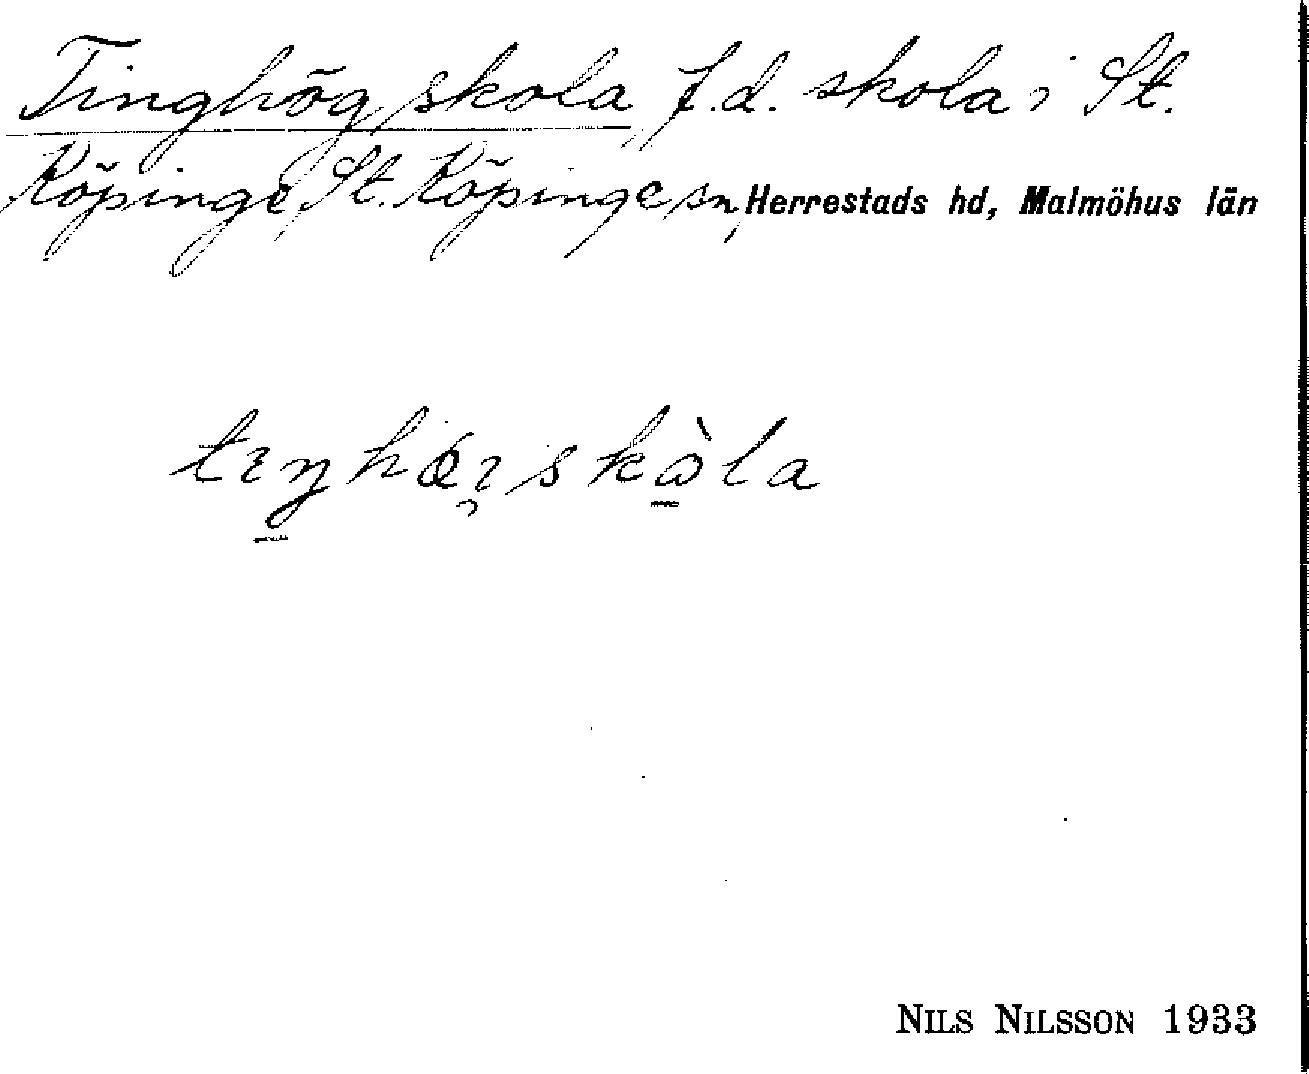 Tinghög skola, f.d. skola i St.
Köpinge, St. Köpinge sn, Herrestads hd, Malmöhus län
tɪŋhǿi̯skὼla
NILS NILSSON 1933